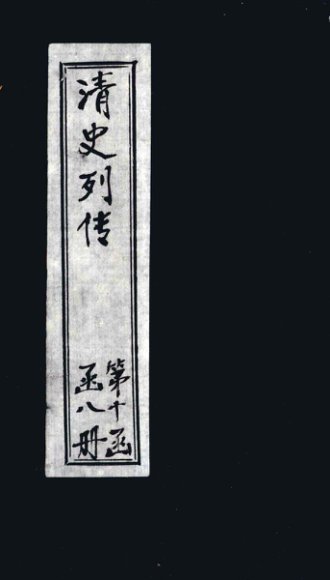 清史列传
第十函
函八册